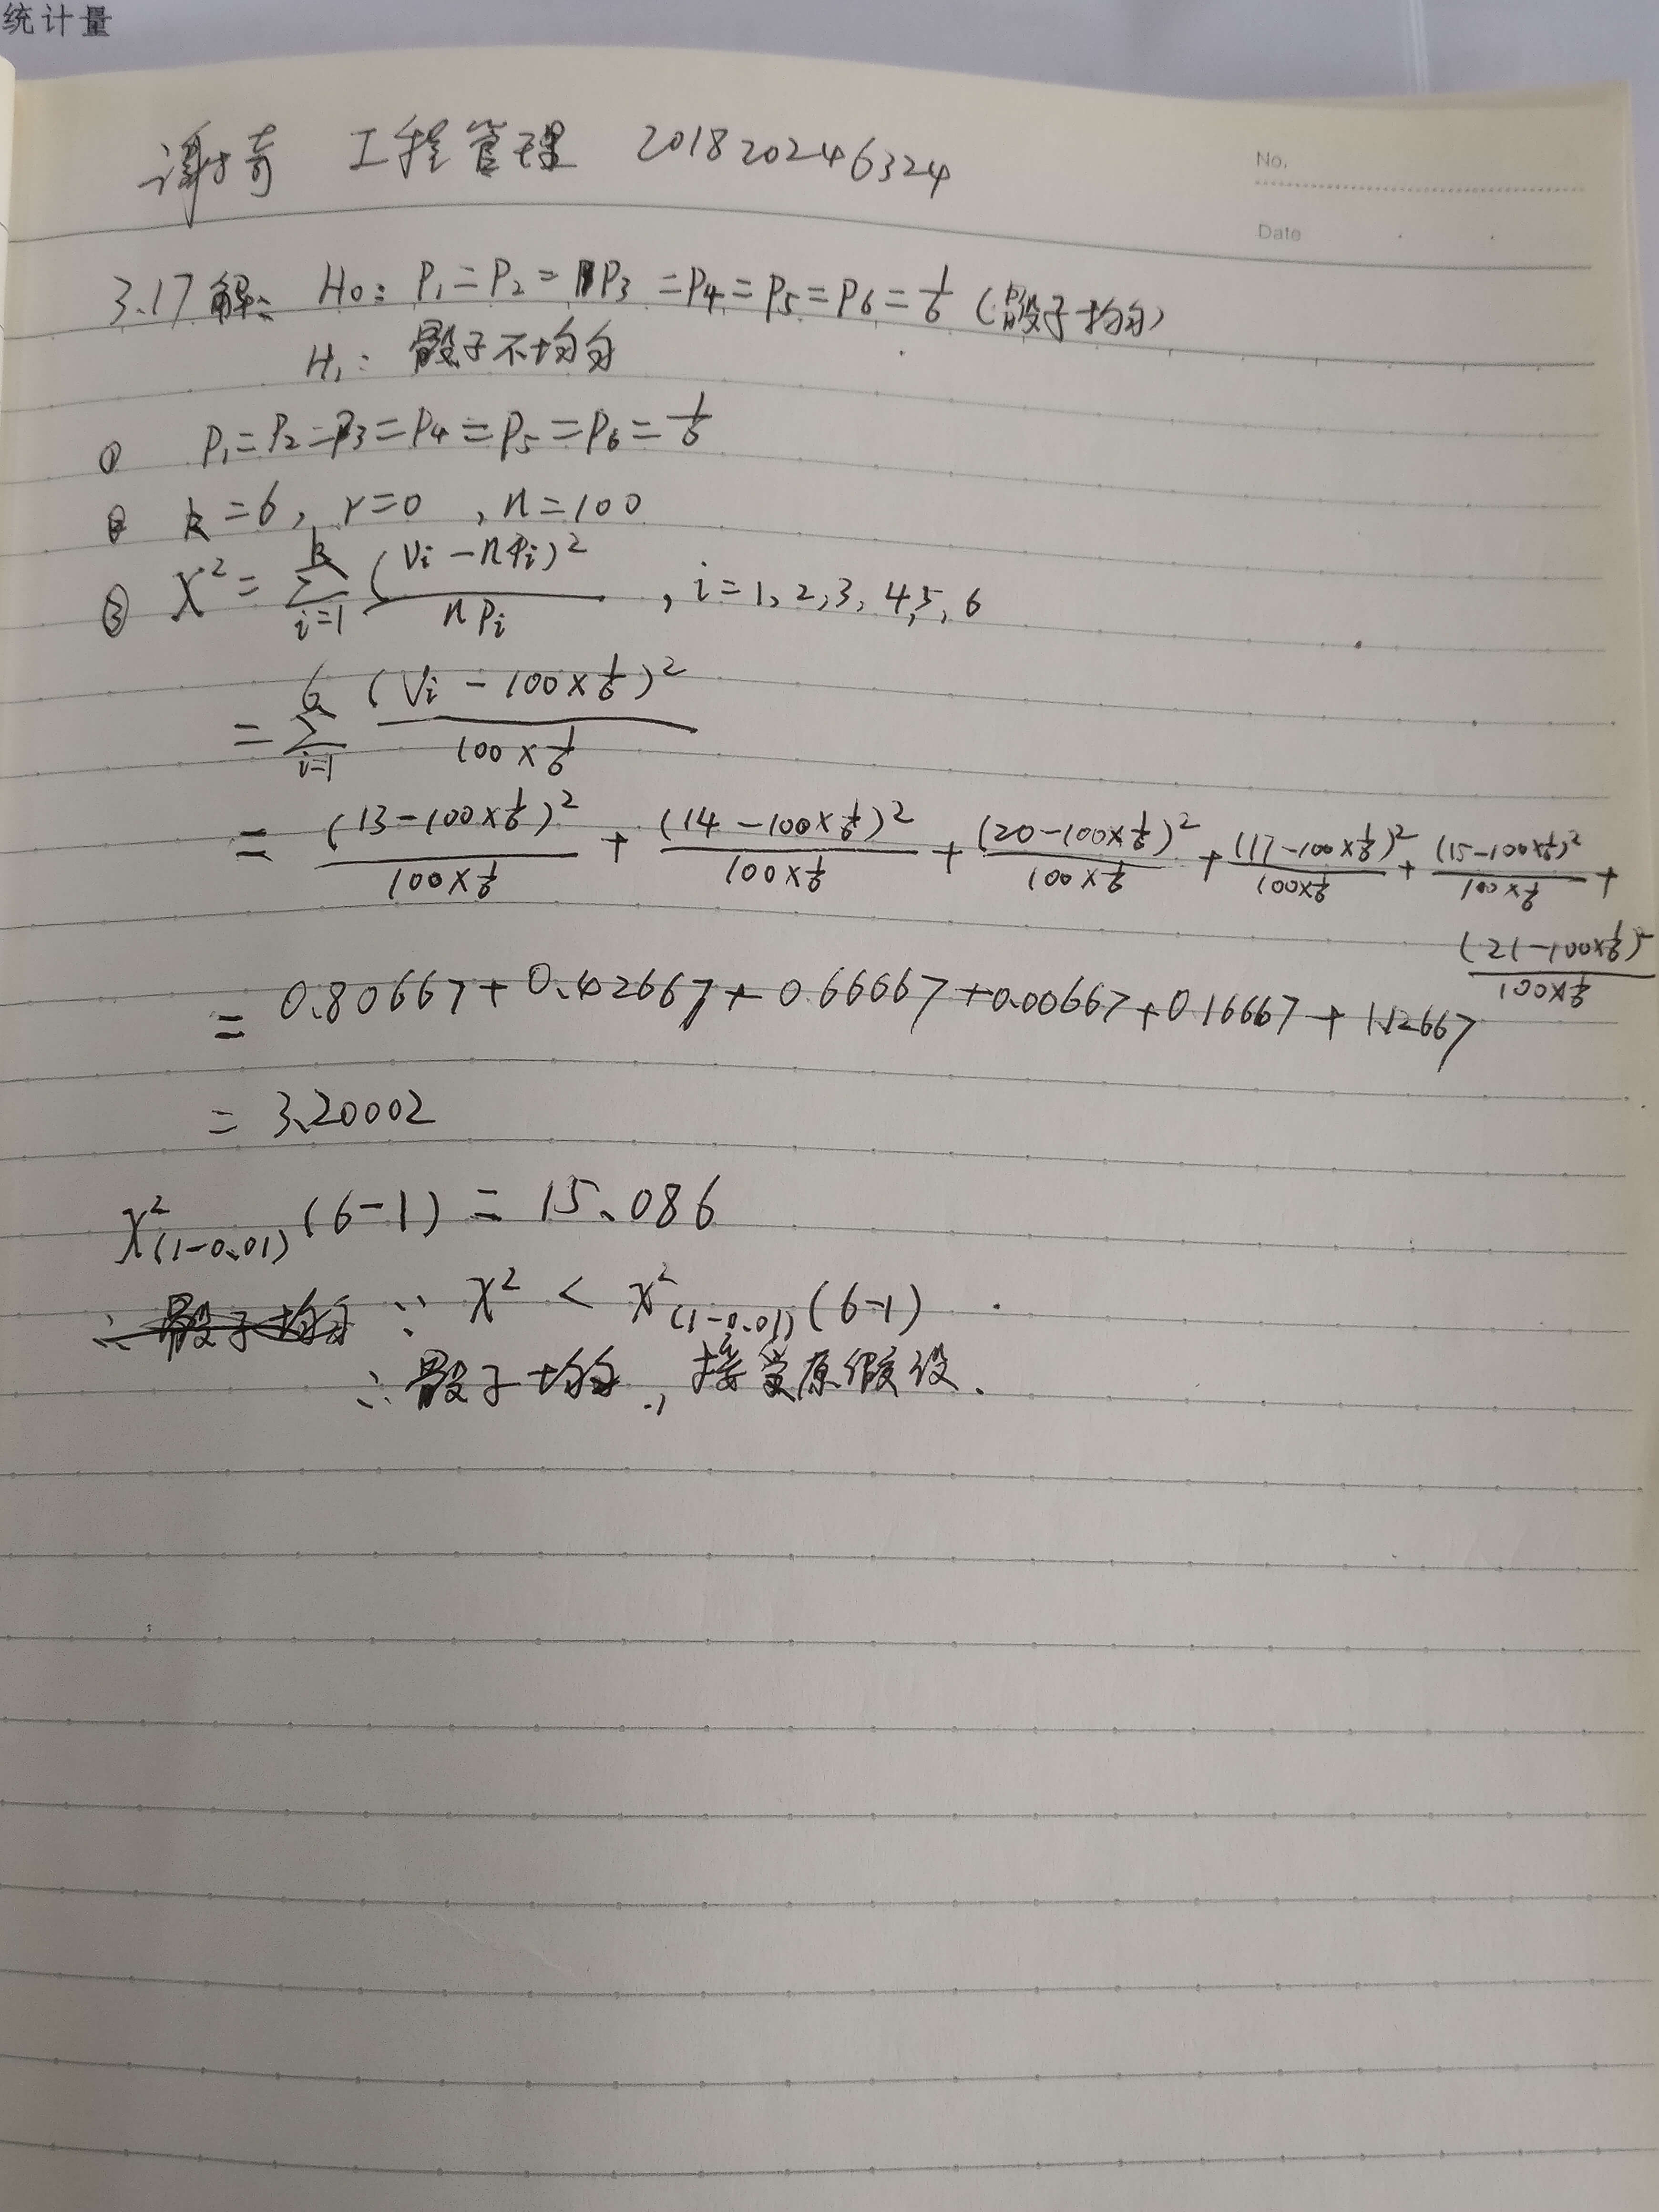 统计量
谢奇 工程管理 201820246324
No.
Date
3.17解: H₀: P₁=P₂=P₃=P₄=P₅=P₆=1/6 (骰子均匀)
H₁: 骰子不均匀
① P₁=P₂=P₃=P₄=P₅=P₆=1/6
② k=6, r=0, n=100
③ χ²=∑_{i=1}^{k} (Vi-nPi)²/nPi, i=1,2,3,4,5,6
=∑_{i=1}^{6} (Vi-100×1/6)²/100×1/6
= (13-100×1/6)²/100×1/6 + (14-100×1/6)²/100×1/6 + (20-100×1/6)²/100×1/6 + (17-100×1/6)²/100×1/6 + (15-100×1/6)²/100×1/6 +
(21-100×1/6)²/100×1/6
= 0.80667+0.42667+0.66667+0.00667+0.16667+1.12667
= 3.20002
χ²(1-0.01)(6-1) = 15.086
∴骰子均匀 ∵ χ² < χ²(1-0.01)(6-1)
∴骰子均匀, 接受原假设.